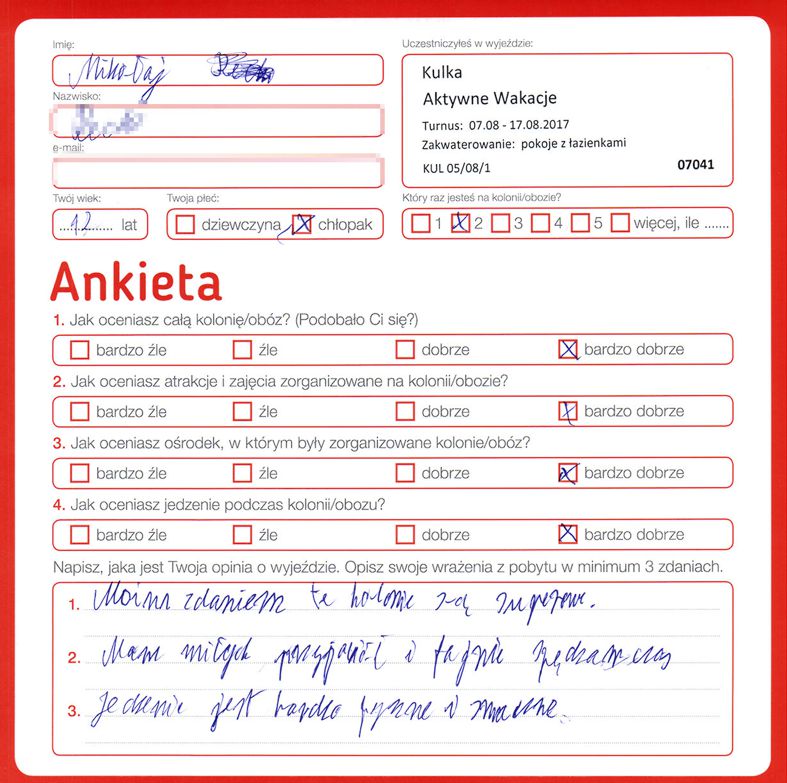 Imię:
Mikołaj
Nazwisko:
e-mail:
Twój wiek:
12 lat
Twoja płeć:
dziewczyna X chłopak
Uczestniczyłeś w wyjeździe:
Kulka
Aktywne Wakacje
Turnus: 07.08 - 17.08.2017
Zakwaterowanie: pokoje z łazienkami
KUL 05/08/1 07041
Który raz jesteś na kolonii/obozie?
1 X 2 3 4 5 więcej, ile .......
Ankieta
1. Jak oceniasz całą kolonię/obóz? (Podobało Ci się?)
bardzo źle źle dobrze X bardzo dobrze
2. Jak oceniasz atrakcje i zajęcia zorganizowane na kolonii/obozie?
bardzo źle źle dobrze X bardzo dobrze
3. Jak oceniasz ośrodek, w którym były zorganizowane kolonie/obóz?
bardzo źle źle dobrze X bardzo dobrze
4. Jak oceniasz jedzenie podczas kolonii/obozu?
bardzo źle źle dobrze X bardzo dobrze
Napisz, jaka jest Twoja opinia o wyjeździe. Opisz swoje wrażenia z pobytu w minimum 3 zdaniach.
1. Moim zdaniem te kolonie są superowe.
2. Mam miłych przyjaciół i fajnie spędzam czas
3. Jedzenie jest bardzo pyszne i smaczne.